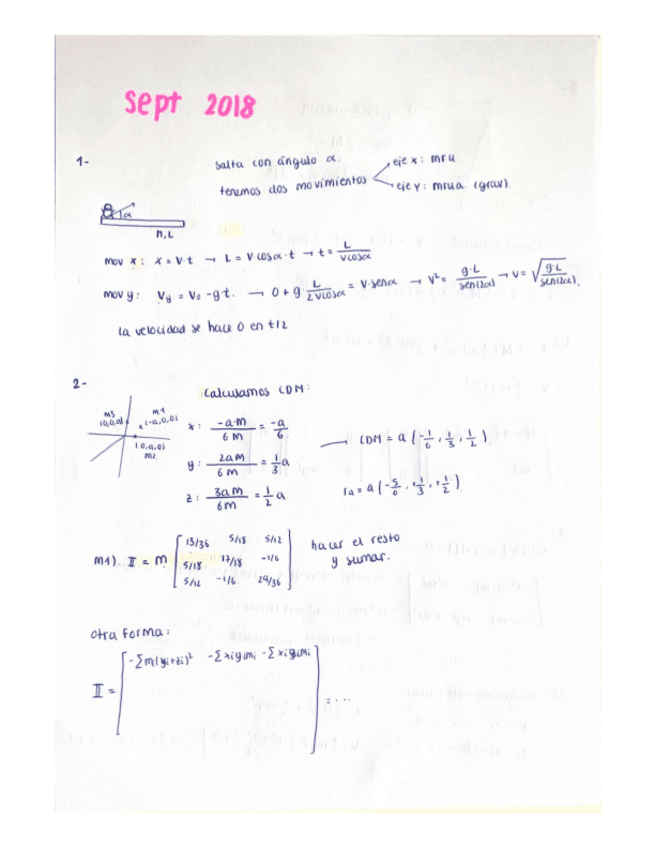 Sept 2018
1-
salta con ángulo α.
tenemos dos movimientos
eje x: mru
eje y: mrua (grav).
α
M, L
mov x: x = v·t → L = v·cosα·t → t = L / v cosα
mov y: Vy = V₀ - gt. → 0 + g · L / 2vcosα = v·senα → v² = g·L / sen(2α) → v = √(g·L / sen(2α)).
la velocidad se hace 0 en t/2
2-
Calculamos CDM:
m3 (0,0,a)
m1 (-a,0,0)
(0,a,0) m2
x: -a·m / 6m = -a / 6
y: 2am / 6m = 1/3 a
z: 3am / 6m = 1/2 a
→ CDM = a (-1/6, 1/3, 1/2)
ra = a (-5/6, -1/3, -1/2)
m1). II = m [13/36 5/18 5/12
5/18 17/18 -1/6
5/12 -1/6 29/36]
hacer el resto
y sumar.
otra forma:
II = [-Σm(yi+zi)² -Σxiyimi -Σxiyimi] = ...